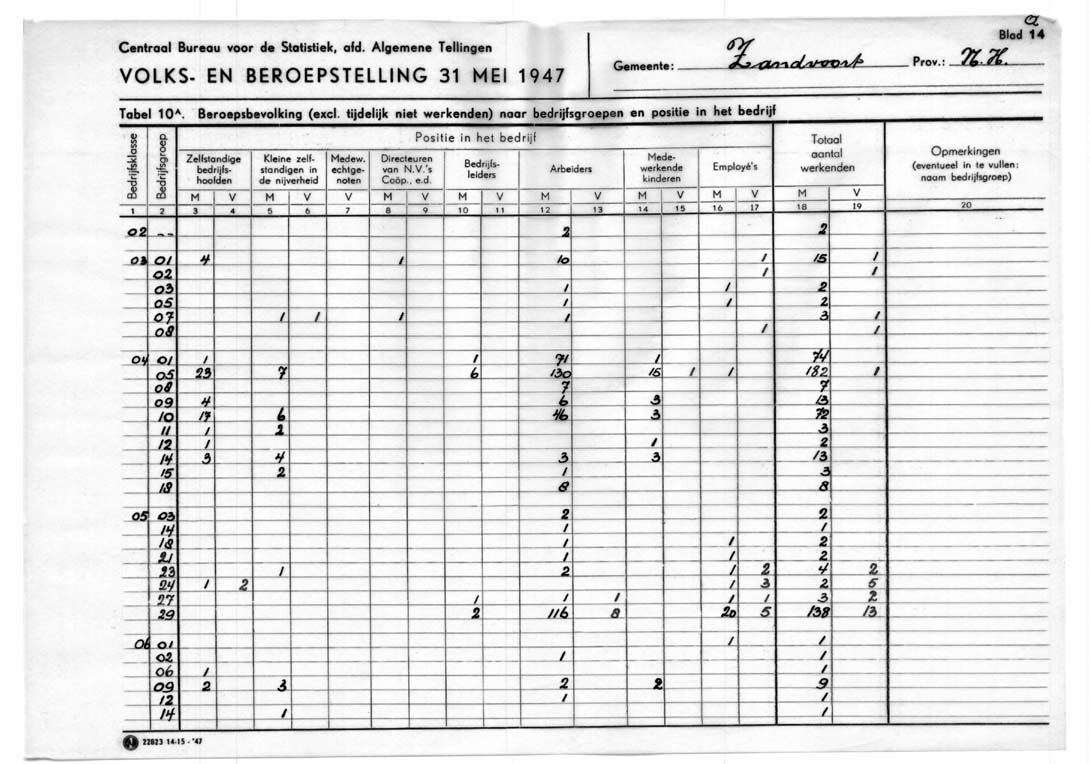 a
Blad 14
Centraal Bureau voor de Statistiek, afd. Algemene Tellingen
VOLKS- EN BEROEPSTELLING 31 MEI 1947
Gemeente: Zandvoort Prov.: N.H.
Tabel 10A. Beroepsbevolking (excl. tijdelijk niet werkenden) naar bedrijfsgroepen en positie in het bedrijf
Bedrijfsklasse Bedrijfsgroep Positie in het bedrijf Totaal aantal werkenden Opmerkingen (eventueel in te vullen: naam bedrijfsgroep)
Zelfstandige bedrijfshoofden Kleine zelfstandigen in de nijverheid Medew. echtgenoten Directeuren van N.V.'s Coöp., e.d. Bedrijfsleiders Arbeiders Medewerkende kinderen Employé's
M V M V V M V M V M V M V M V M V
1 2 3 4 5 6 7 8 9 10 11 12 13 14 15 16 17 18 19 20
02 -- 2 2
03 01 4 1 10 1 15 1
02 1 1
03 1 1 2
05 1 1 2
07 1 1 1 1 3 1
08 1 1
04 01 1 1 71 1 74
05 23 7 6 130 15 1 1 182 1
08 7 7
09 4 6 3 13
10 17 6 46 3 72
11 1 2 3
12 1 1 2
14 3 4 3 3 13
15 2 1 3
18 8 8
05 03 2 2
14 1 1
18 1 1 2
21 1 1 2
23 1 2 1 2 4 2
24 1 2 1 3 2 5
27 1 1 1 1 1 3 2
29 2 116 8 20 5 138 13
06 01 1 1
02 1 1
06 1 1
09 2 3 2 2 9
12 1 1
14 1 1
22823 14-15 - '47